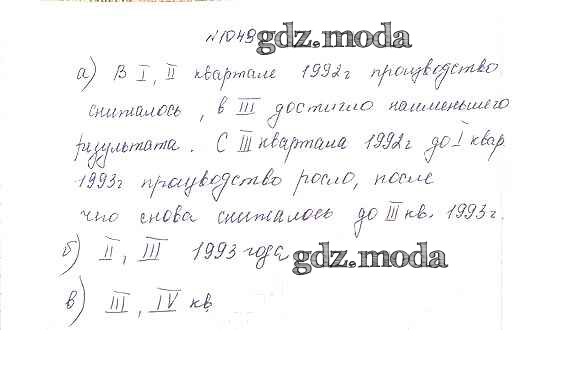 №1049 gdz.moda
а) В I, II квартале 1992г производство
снижалось, в III достигло наименьшего
результата. С III квартала 1992г до I квар.
1993г производство росло, после
чего снова снижалось до III кв. 1993г.
б) II, III 1993 года gdz.moda
в) III, IV кв